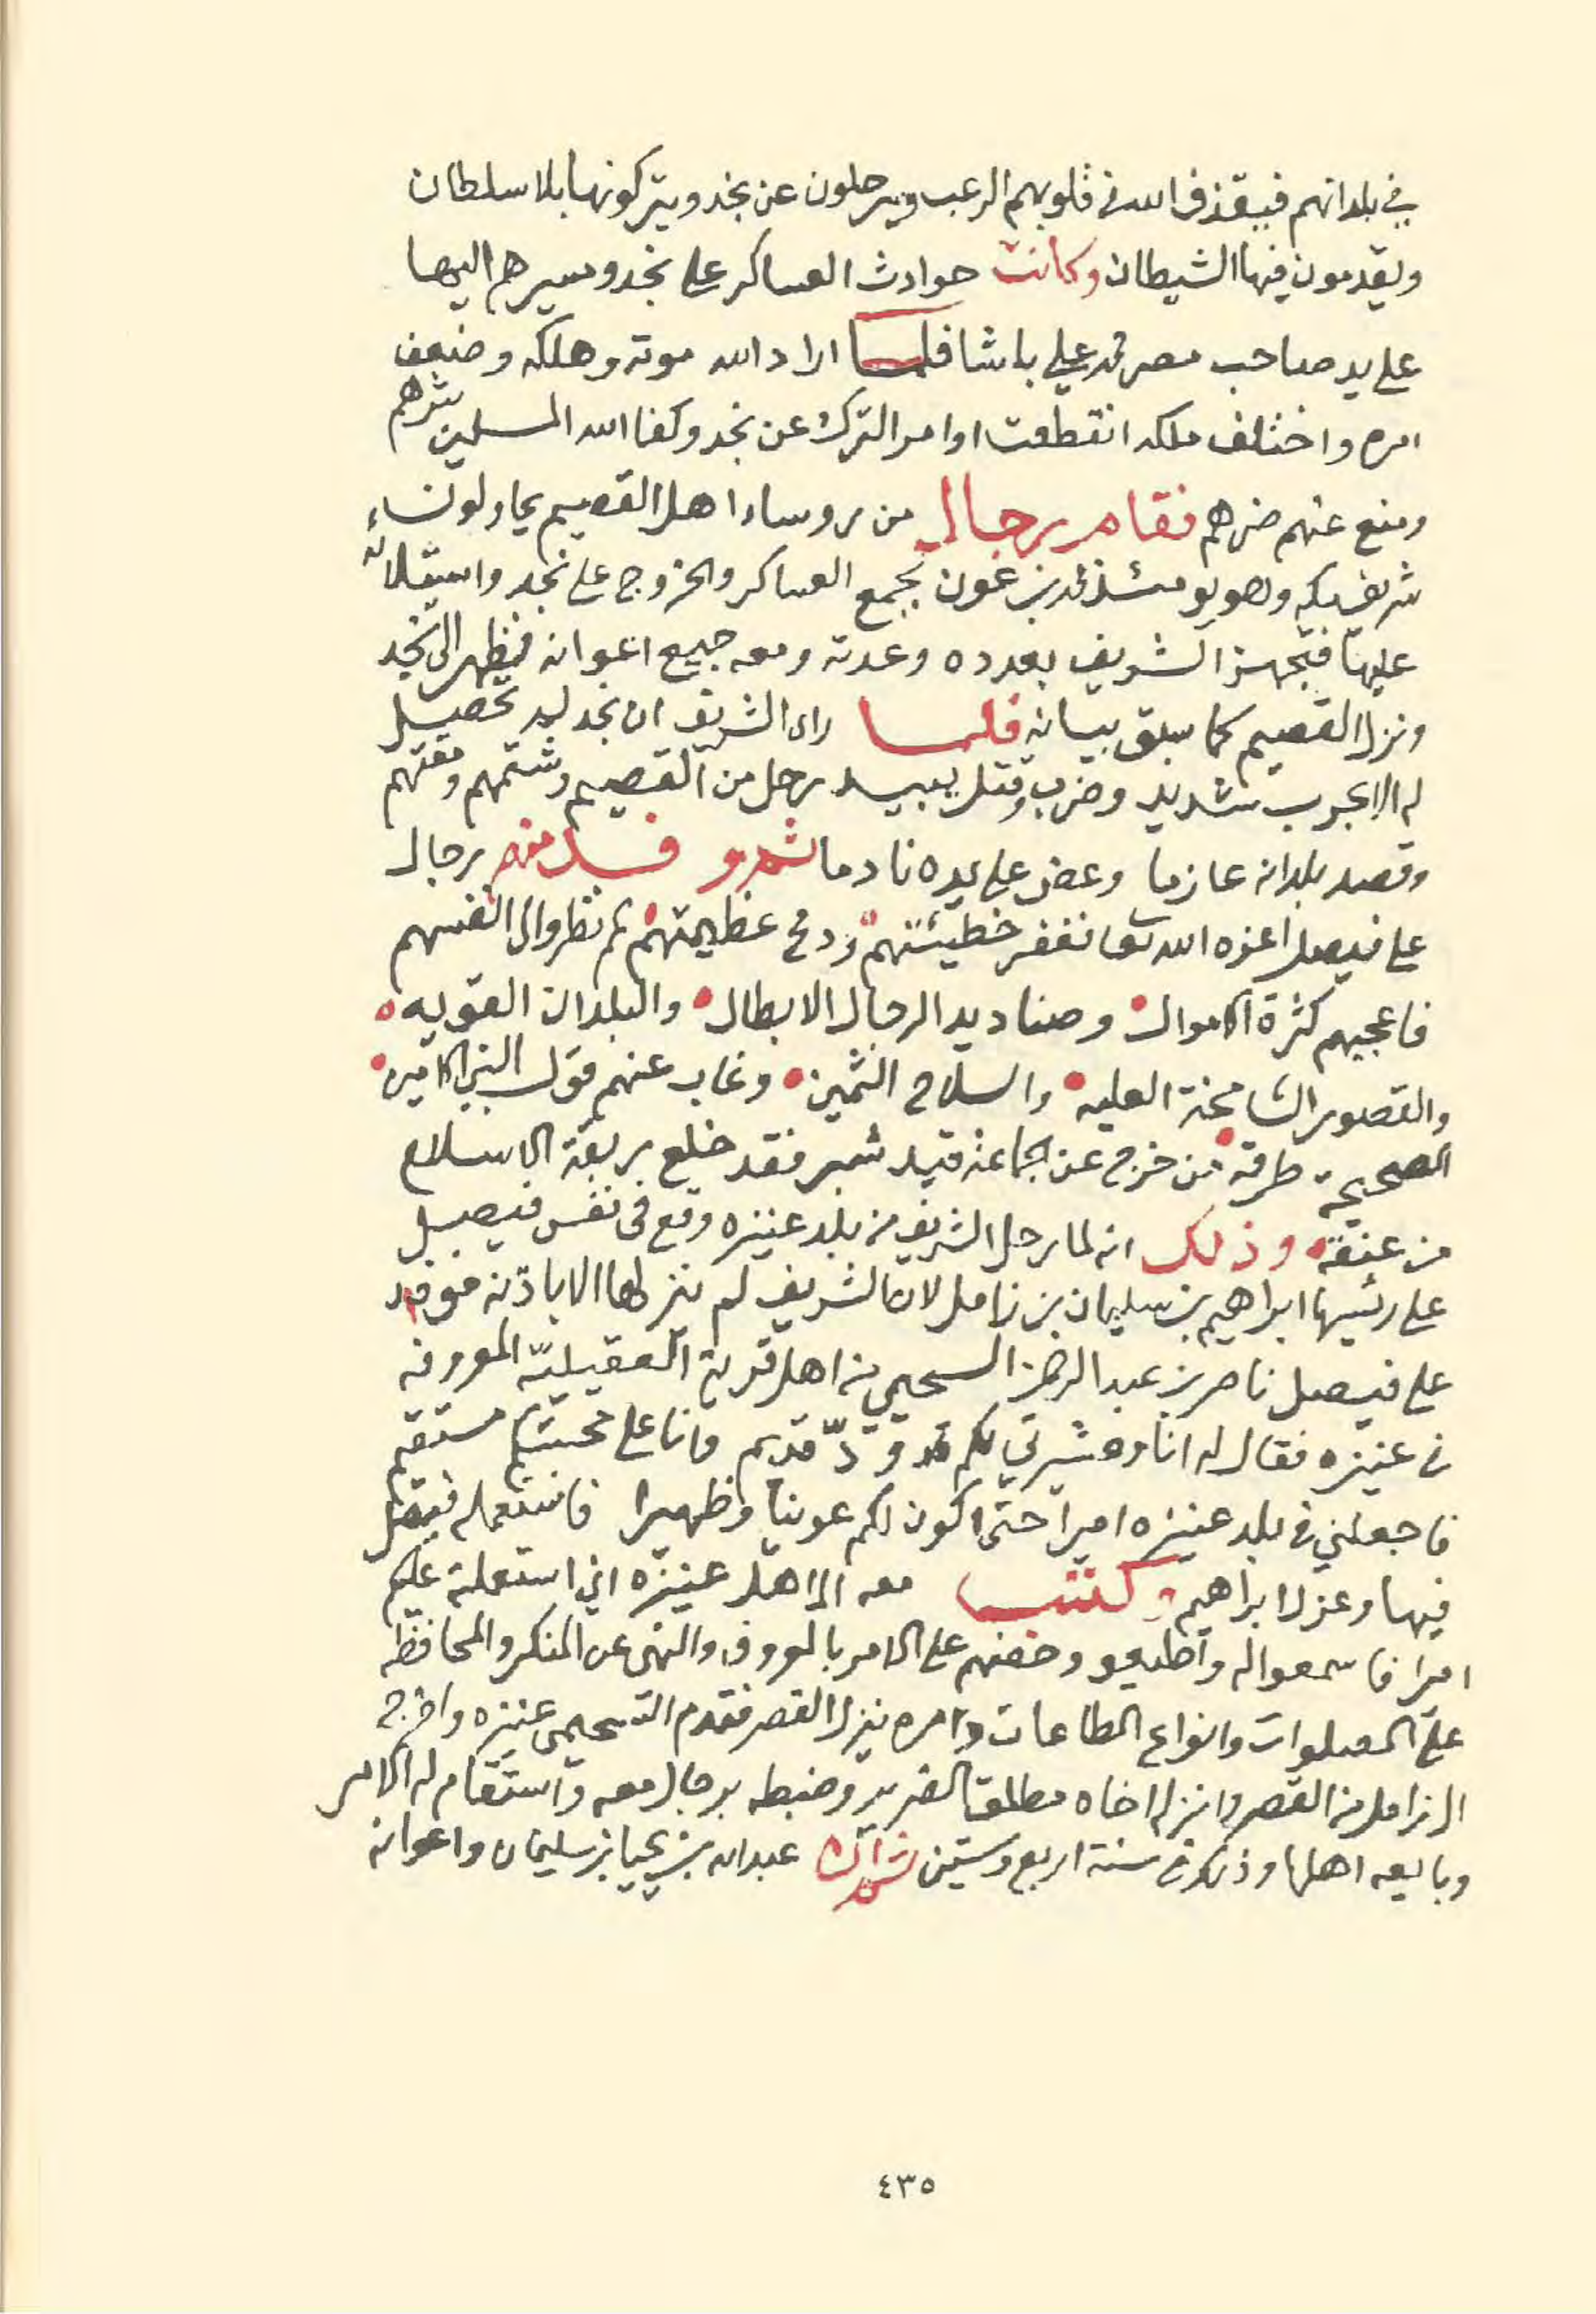 في بلدانهم فيقذف الله في قلوبهم الرعب ويرحلون عن نجد ويتركونها بلا سلطان
ويقدمون فيها الشيطان وكانت حوادث العساكر على نجد ومسيرهم اليها
على يد صاحب مصر محمد علي باشا فلما اراد الله موته وهلكه وضعف
امره واختلف ملكه انقطعت اوامر الترك عن نجد وكفا الله المسلمين شرهم
ومنع عنهم ضرهم فقام رجال من روساء اهل القصيم يحاولون
شريف مكه وهو يومئذ محمد بن عون بجمع العساكر والخروج على نجد واستيلائه
عليها فتجهز الشريف بعدده وعدته ومعه جميع اعوانه فظهر الى نجد
ونزل القصيم كما سبق بيانه فلما راى الشريف ان نجد ليد تحصيل
له الا بحرب شديد وضرب وقتل يبيد رحل من القصيم وشتمهم ومقتهم
وقصد بلدانه عازما وعض على يده نادما ثم وفد منهم رجال
على فيصل اعزه الله تعا فغفر خطيئتهم ودمح عظيمتهم ثم نظروا الى انفسهم
فاعجبهم كثرة الاموال وصناديد الرجال الابطال والبلدان القويه
والقصور الشامخة العليه والسلاح الثمين وغاب عنهم قول النبي الامين
الصحيحة طرقه من خرج عن الجماعة قيد شبر فقد خلع ربقة الاسلام
من عنقه وذلك انه لما رحل الشريف من بلد عنيزه وقع في نفس فيصل
على رئيسها ابراهيم بن سليمان بن زامل لان الشريف لم ينزلها الا باذنه فوفد
على فيصل ناصر بن عبد الرحمن السحيمي من اهل قرية العقيليّة المعروفه
في عنيزه فقال له انا وعشيرتي لكم ودّ قديم وانا على محبتكم مستقيم
فاجعلني في بلد عنيزه اميرا حتى اكون لكم عوينا وظهيرا فاستعمله فيصل
فيها وعزل ابراهيم وكتب معه الى اهل عنيزه اني استعملته عليكم
اميرا فاسمعوا له واطيعو وحضهم على الامر بالمعروف والنهى عن المنكر والمحافظه
على الصلوات وانواع الطاعات وامره ينزل القصر فقدم السحيمي عنيزه واخرج
ال زامل من القصر وانزله اخاه مطلق الضرير وضبطه برجال معه واستقام له الامر
وبايعه اهلها وذلك في سنة اربع وستين ثم ان عبد الله بن يحيا بن سليمان واعوانه
٤٣٥